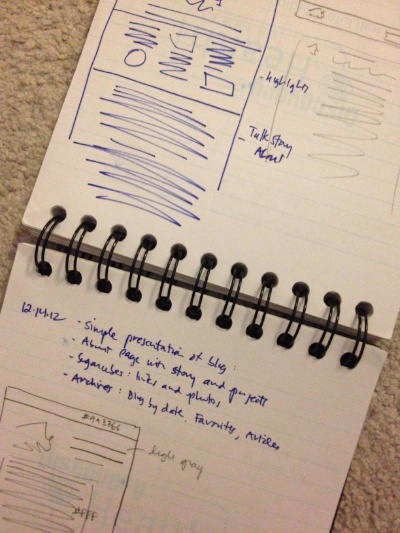 - highlights
- Talk story
About
12.14.12
- Simple presentation of blog:
- About page with story and projects
- Sugarcubes: links and photos
- Archives: Blog by date, Favorites, Articles
#993366
#FFF